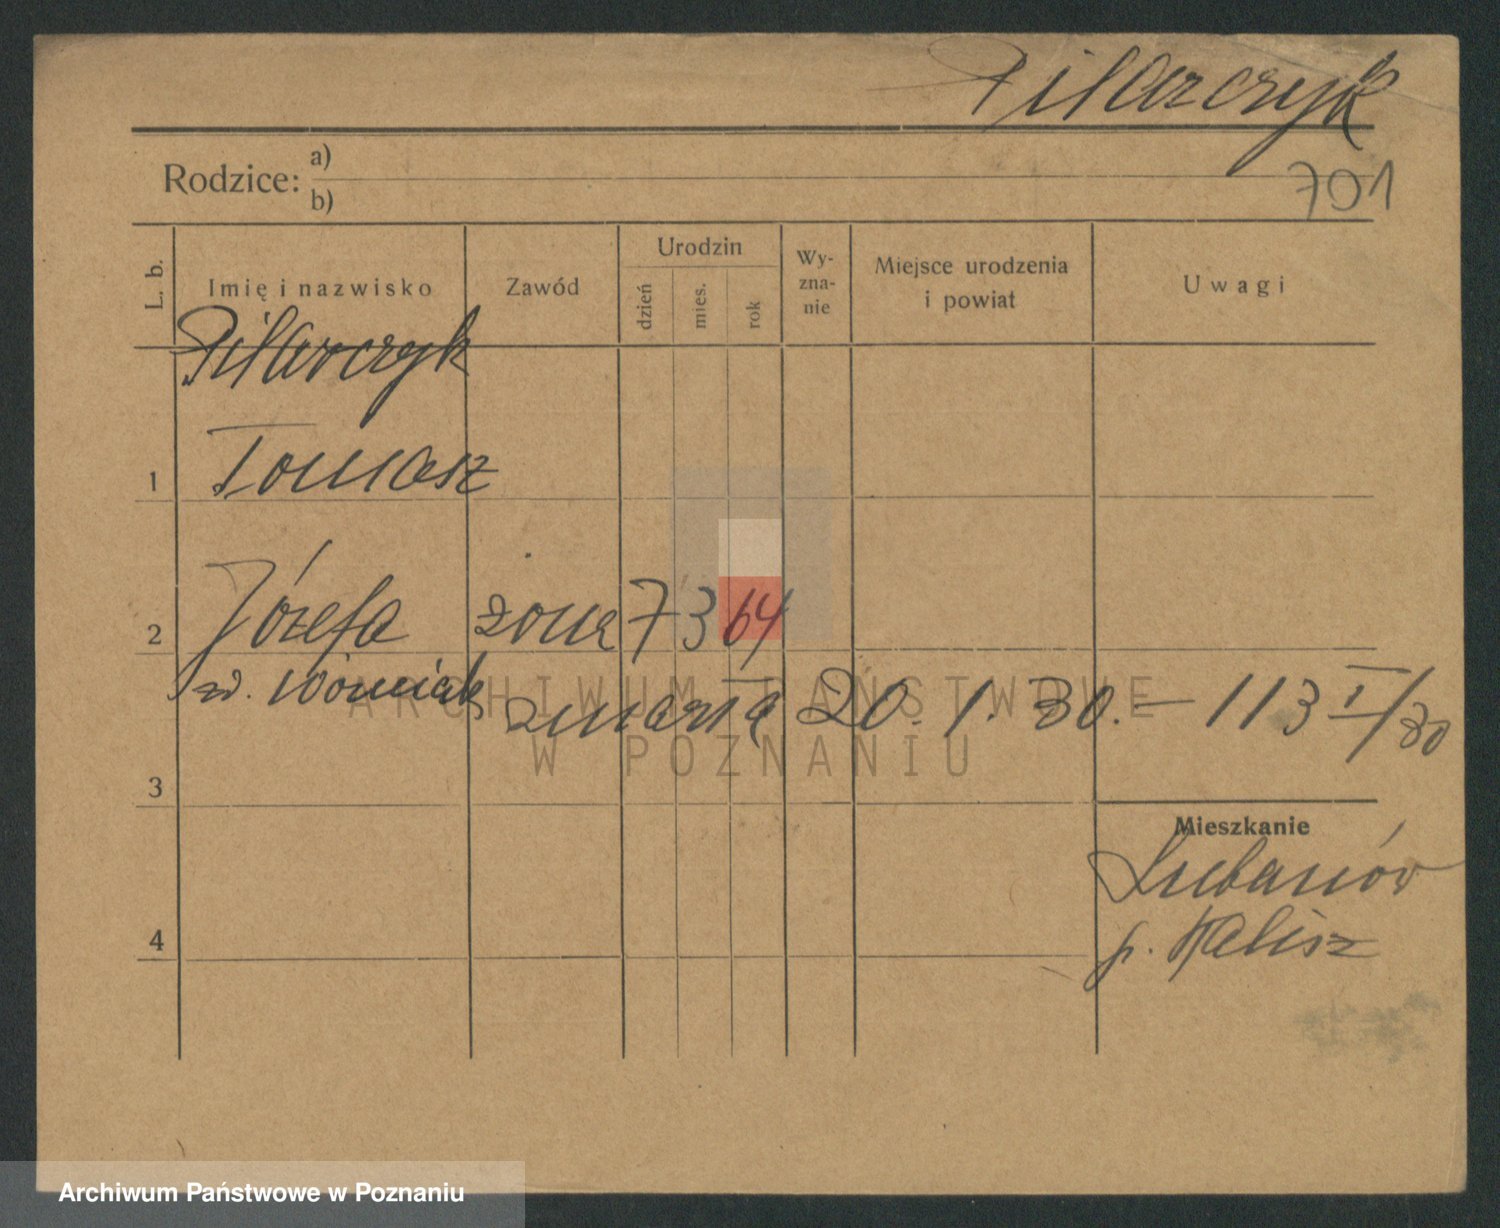 Pilarczyk
701
Rodzice: a)
b)
L. b. Imię i nazwisko Zawód Urodzin dzień mies. rok Wy-zna-nie Miejsce urodzenia i powiat Uwagi
Pilarczyk
1 Tomasz
2 Józefa żona 7 3 64
zd. Woźniak zmarła 20. 1. 30. — 113 I/30
3
Mieszkanie
4
p. Kalisz
ARCHIWUM PAŃSTWOWE
W POZNANIU
Archiwum Państwowe w Poznaniu